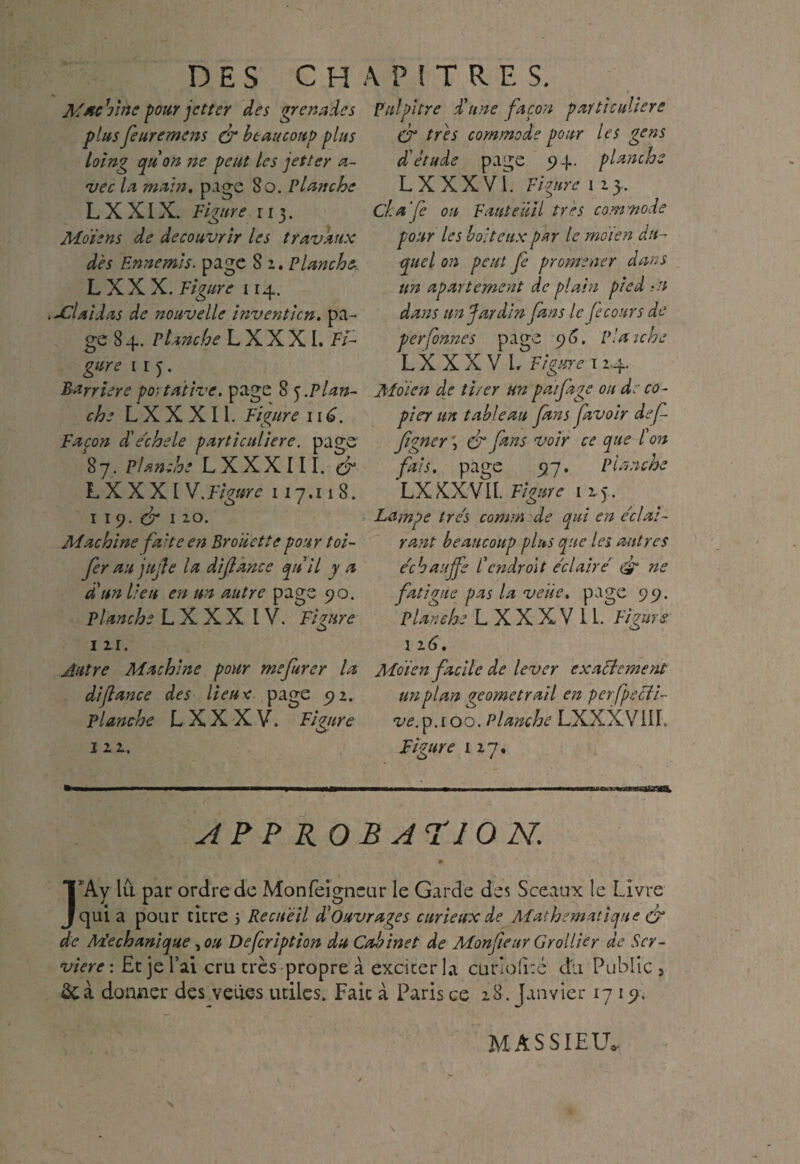 DES CHAPITRES.
Machine pour jetter des grenades
plus seuremens & beaucoup plus
loing qu'on ne peut les jetter a-
vec la main. page 80. Planche
LXXIX. Figure 113.
Moïens de decouvrir les travaux
dès Ennemis. page 82. Planche
LXXX. Figure 114.
Claidas de nouvelle invention. pa-
ge 84. Planche LXXXI. Fi-
gure 115.
Barriere portative. page 85. Plan-
che LXXXII. Figure 116.
Façon d'échele particuliere. page
87. Planche LXXXIII. &
LXXXIV. Figure 117. 118.
119. & 120.
Machine faite en Broüette pour toi-
ser au juste la distance qu'il y a
d'un lieu en un autre page 90.
Planche LXXXIV. Figure
121.
Autre Machine pour mesurer la
distance des lieux page 92.
Planche LXXXV. Figure
122.
Pulpitre d'une façon particuliere
& très commode pour les gens
d'étude page 94. planche
LXXXVI. Figure 123.
Chaise ou Fauteüil très commode
pour les boiteux par le moïen du-
quel on peut se promener dans
un apartement de plain pied en
dans un Jardin sans le secours de
personnes page 96. Planche
LXXXVI. Figure 124.
Moïen de tirer un païsage ou de co-
pier un tableau sans savoir des-
signer, & sans voir ce que l'on
fais. page 97. Planche
LXXXVII. Figure 125.
Lampe trés commode qui en éclai-
rant beaucoup plus que les autres
échauffe l'endroit éclairé & ne
fatigue pas la veüe. page 99.
Planche LXXXVII. Figure
126.
Moïen facile de lever exactement
un plan geometrail en perspecti-
ve. p. 100. Planche LXXXVIII.
Figure 127.
APPROBATION.
J'Ay lû par ordre de Monseigneur le Garde des Sceaux le Livre
qui a pour titre ; Recuëil d'Ouvrages curieux de Mathematique &
de Mechanique, ou Description du Cabinet de Monsieur Grollier de Ser-
viere : Et je l'ai cru très propre à exciter la curiosité du Public,
& à donner des veües utiles. Fait à Paris ce 28. Janvier 1719.
MASSIEU.